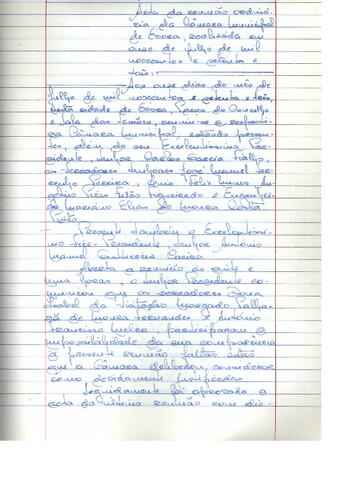 Acta da reunião ordiná-
ria da Câmara Municipal
de Évora, realizada em
onze de julho de mil
novecentos e setenta e
três:
Aos onze dias do mês de
julho de mil novecentos e setenta e três,
nesta cidade de Évora, Paços do Concelho
e sala das sessões, reuniu-se a respecti-
va Câmara Municipal, estando presen-
tes, além do seu Excelentíssimo Pre-
sidente, senhor Carlos Garcia Fialho,
os vereadores senhores José Manuel
Pereira, Félix Nunes,
e Engenhei-
ro Mariano Elias de Moura Costa
Pinto.
Presente também o Excelentíssi-
mo Vice-Presidente, senhor António
Manuel
Aberta a reunião às vinte e
uma horas, o senhor Presidente co-
municou que os vereadores Dona
Isabel da Visitação Morgado
de Moura Fernandes e António
Francisco participaram a
impossibilidade da sua comparência
à presente reunião faltas estas
que a Câmara deliberou, considerar
como devidamente justificadas
Seguidamente foi aprovada a
acta da última reunião com dis-